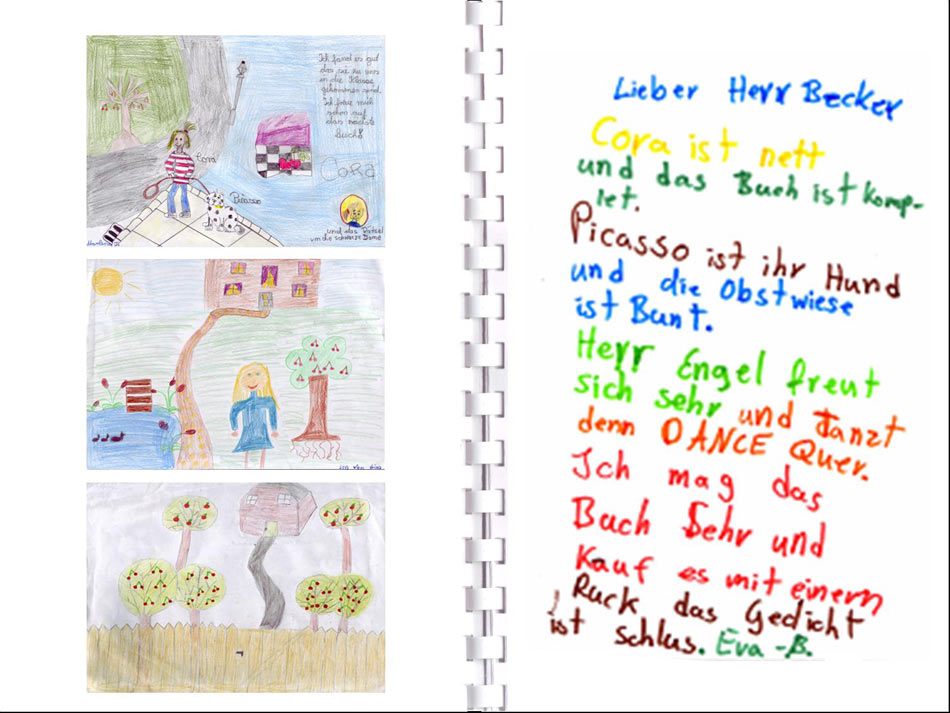 Ich fand es gut
das sie zu uns
in die Klasse
gekommen sind.
Ich freue mich
schon auf
das nächste
Buch!
Cora
Cora
Picasso
und das Rätsel
um die schwarze Dame
Lieber Herr Becker
Cora ist nett
und das Buch ist komp-
let.
Picasso ist ihr Hund
und die Obstwiese
ist Bunt.
Herr Engel freut
sich sehr und Tanzt
denn DANCE Quer.
Ich mag das
Buch Sehr und
Kauf es mit einem
Ruck das Gedicht
ist schlus. Eva -B.